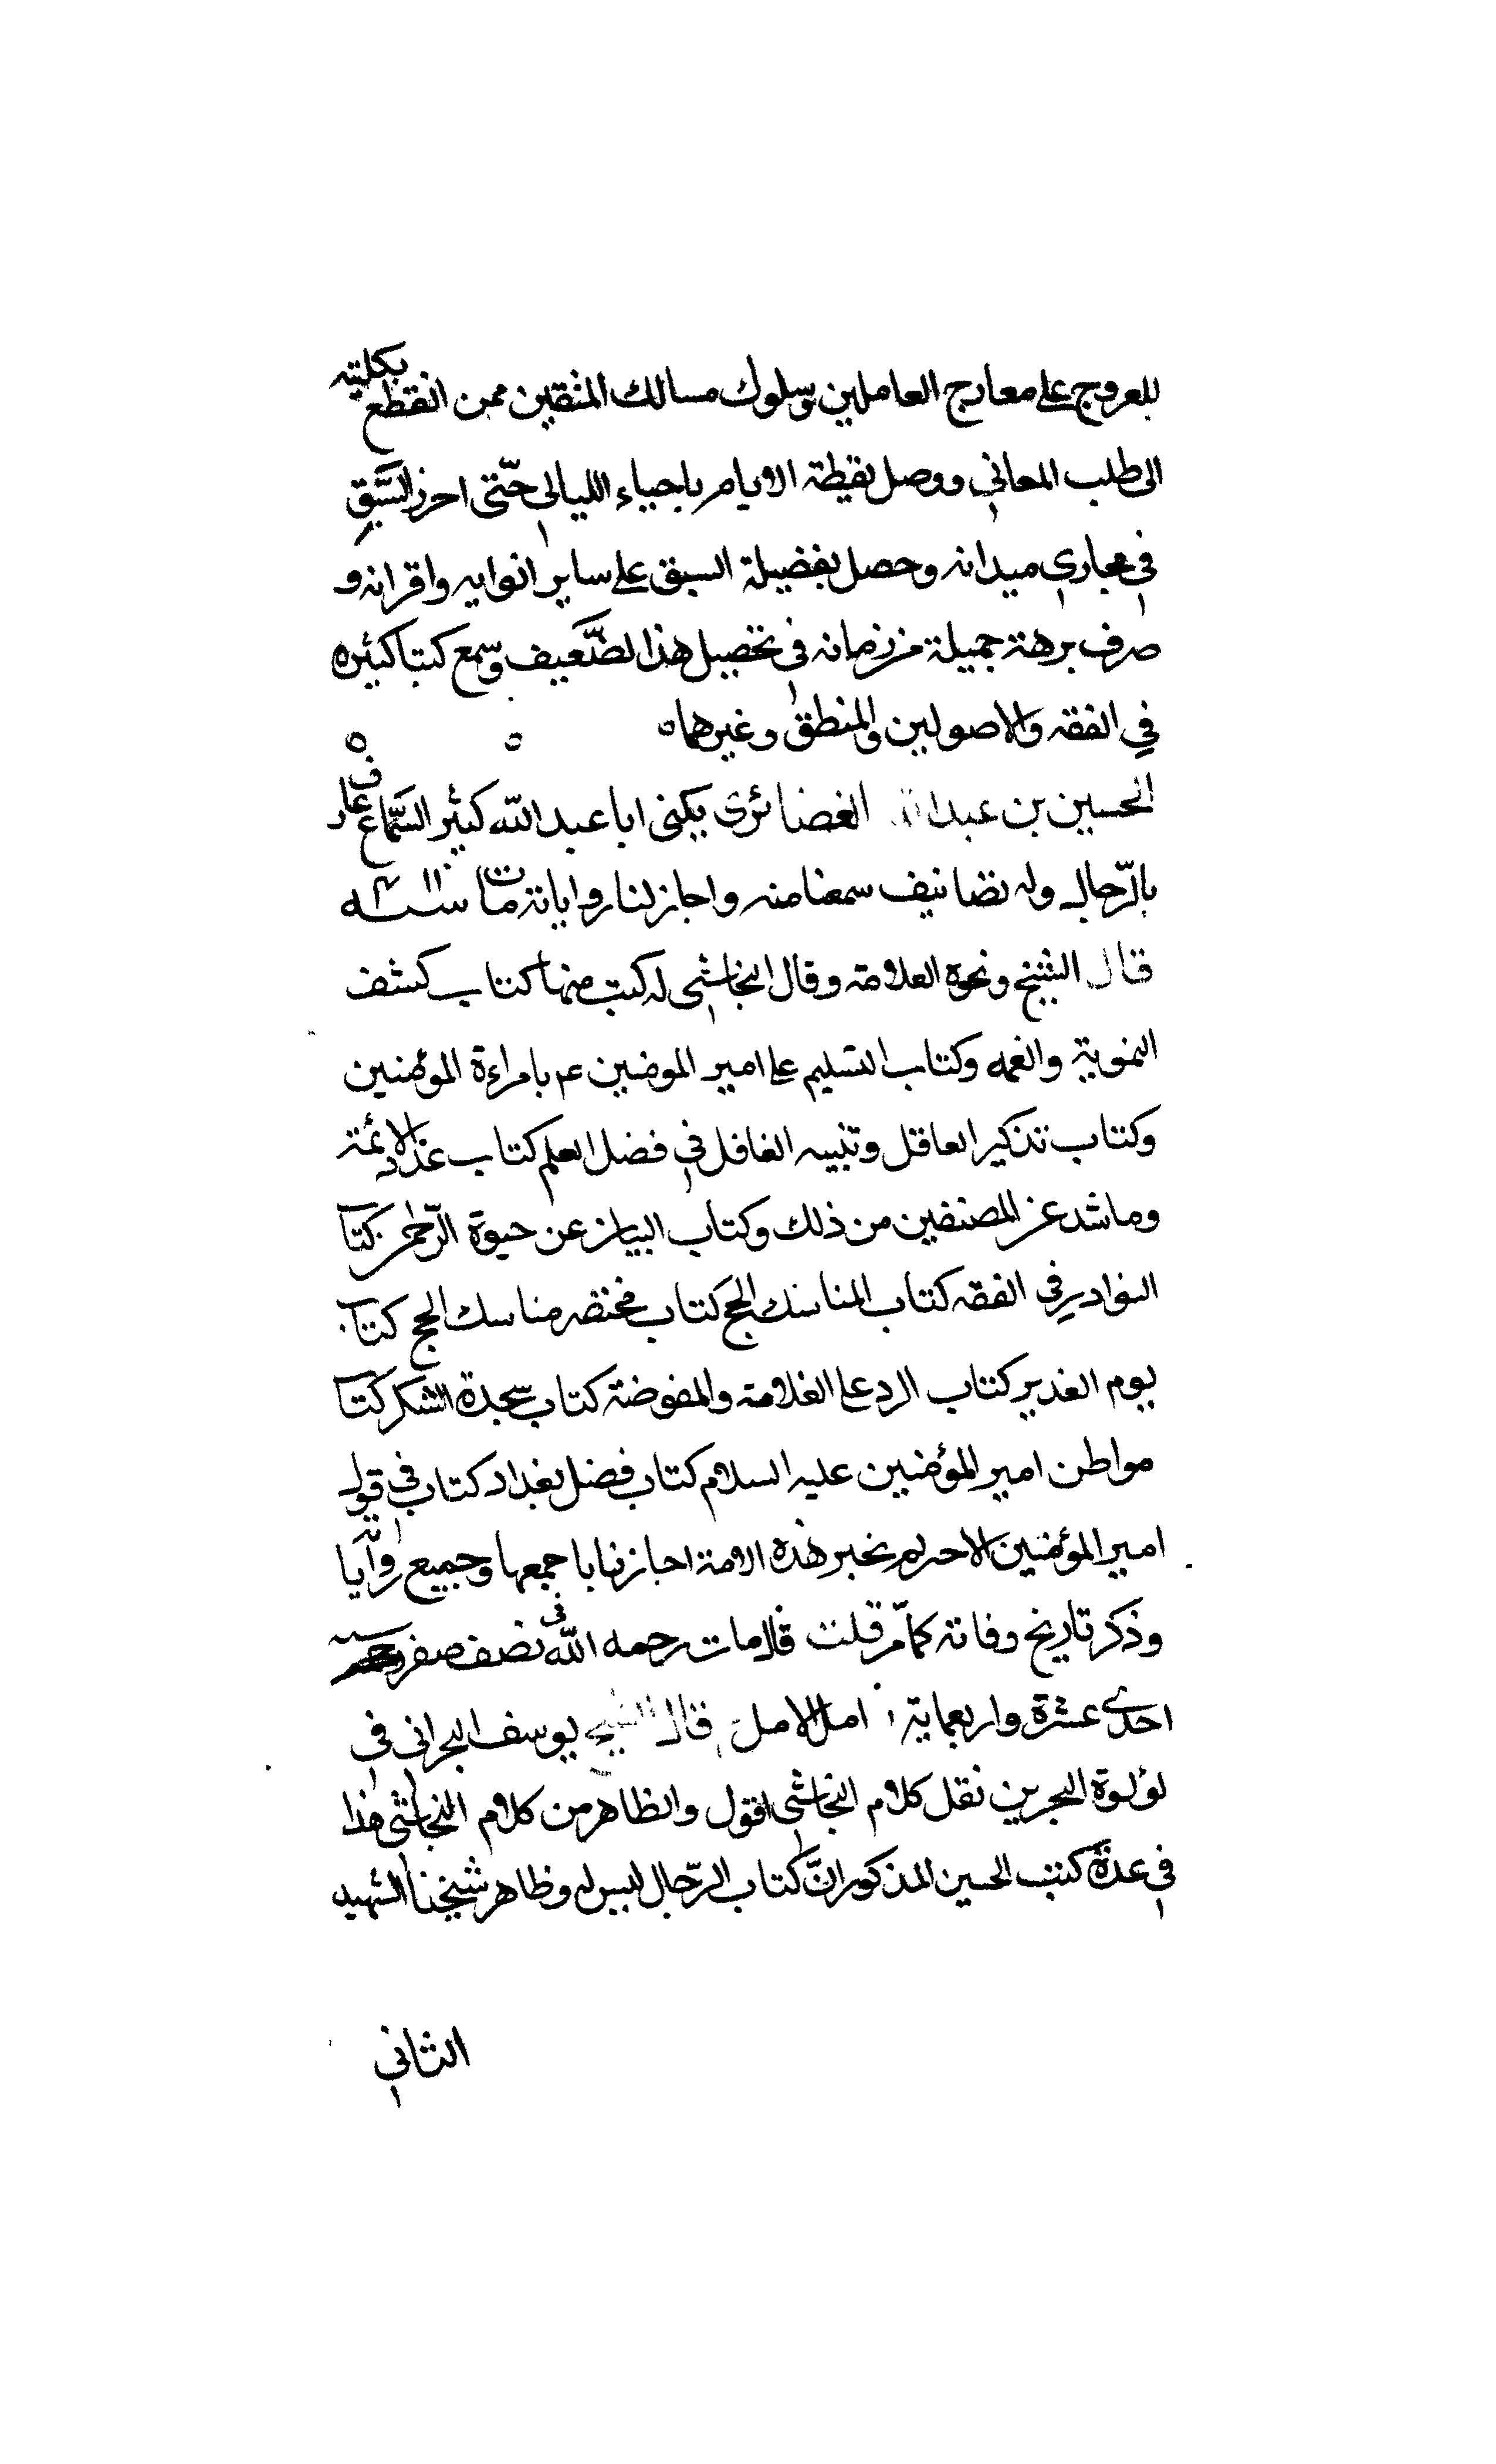 للعروج على معارج العاملين وسلوك مسالك المتقين ممن انقطع بكليته
الى طلب المعاني ووصل يقيظة الايام باحياء الليالي حتّى احرز السّبق
في مجاري ميدانه وحصل بفضيلة السبق على ساير اترابه واقرانه و
صرف برهة جميلة من زمانه في تحصيل هذا الضّعيف وسمع كتبا كثيره
في الفقه والاصولين والمنطق وغيرهما ه
الحسين بن عبد الله الغضائري يكنى ابا عبد الله كثير السّماع عارف
بالرّجال وله تصانيف سمعنا منه واجاز لنا رواياته مات سنة ٤١١
قال الشيخ ونحوه العلامة وقال النجاشي له كتب منها كتاب كشف
التمويه والغمه وكتاب التسليم على امير المومنين عم بامراءة المؤمنين
وكتاب تذكير العاقل وتنبيه الغافل في فضل العلم كتاب عدد الائمة
وما شد عن المصنفين من ذلك وكتاب البيان عن حيوة الرّحمن كتاب
النوادر في الفقه كتاب المناسك الحج كتاب مختصر مناسك الحج كتاب
يوم الغدير كتاب الرد على الغلامة والمفوضة كتاب سجدة الشكر كتاب
مواطن امير المؤمنين عليه السلام كتاب فضل بغداد كتاب في قول
امير المؤمنين الا احدلم بخبر هذه الامة اجازنا باجمعها وجميع رواياته
وذكر تاريخ وفاته كما مّر قلت قال مات رحمه الله في نصف صفر سنه
احدى عشرة واربعماية امل الامل قال الشيخ يوسف البحراني في
لؤلوة البحرين نقل كلام النجاشي اقول والظاهر من كلام النجاشي هذا
في عدة كتب الحسين المذكور انّ كتاب الرّجال ليس له وظاهر شيخنا الشهيد
الثاني